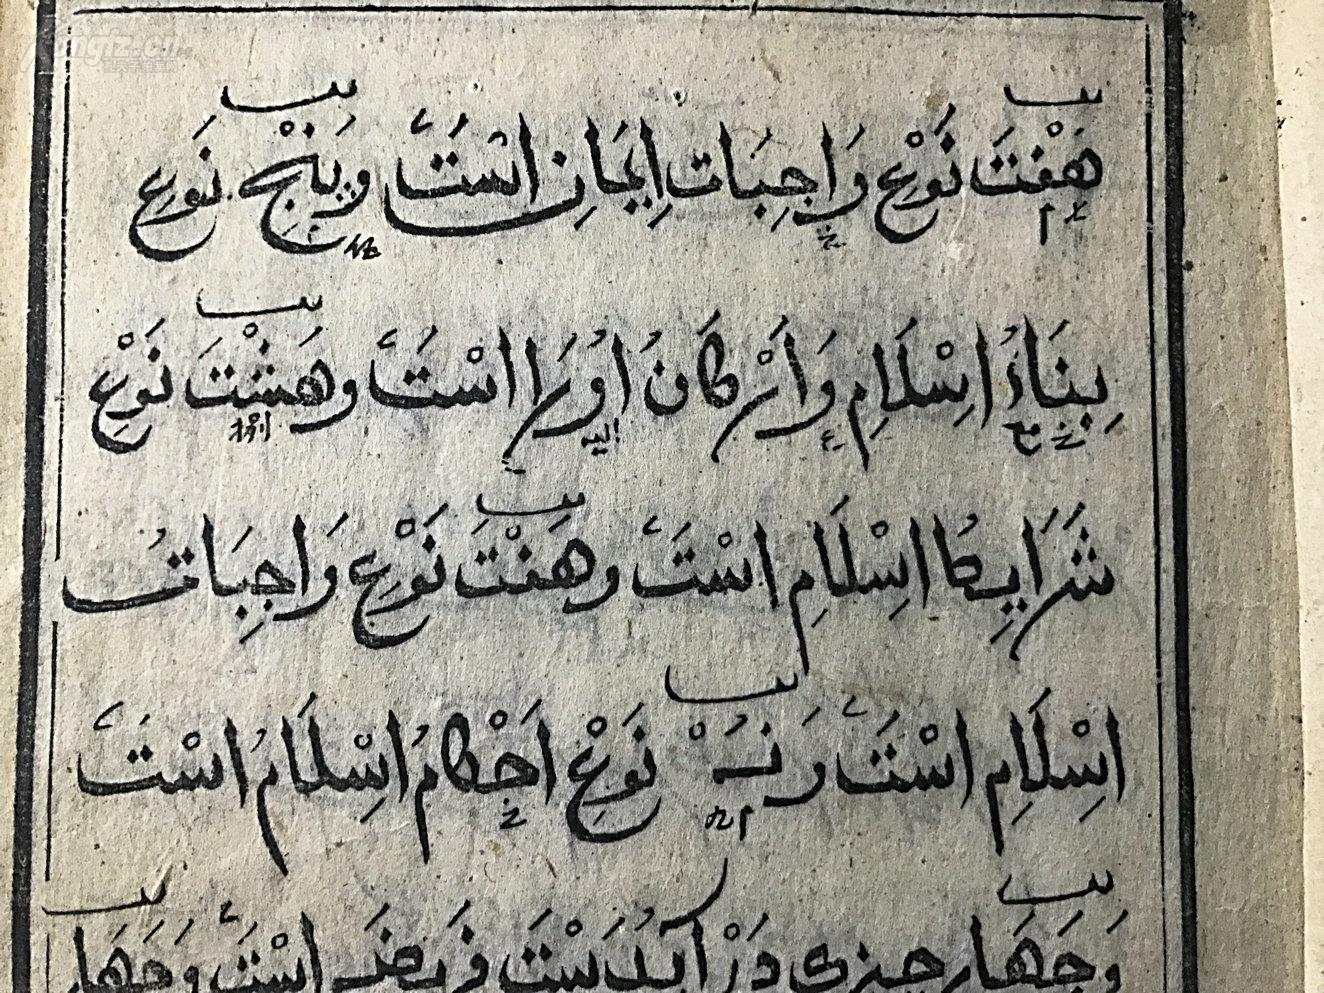 هَفْتَ نَوْعِ وَاجِبَات اِیمَانِ اسْتَ وَپَنْجْ نَوعِ
بِنَاءُ اِسْلَامِ وَأَرْكَانُ اُورَا اسْتَ وهَشْتَ نَوْعِ
شَرَايِطُ اِسْلَامِ اسْتَ وهَفْتَ نَوْعِ وَاجِبَاتُ
اِسْلَامِ اسْتَ وَنُهْ نَوْعِ اَحْكَامُ اِسْلَامُ اسْتَ
وَچَهَار چیزی دَرْ آبدَسْتَ فَرِيضَه اسْتَ وَچَهَار